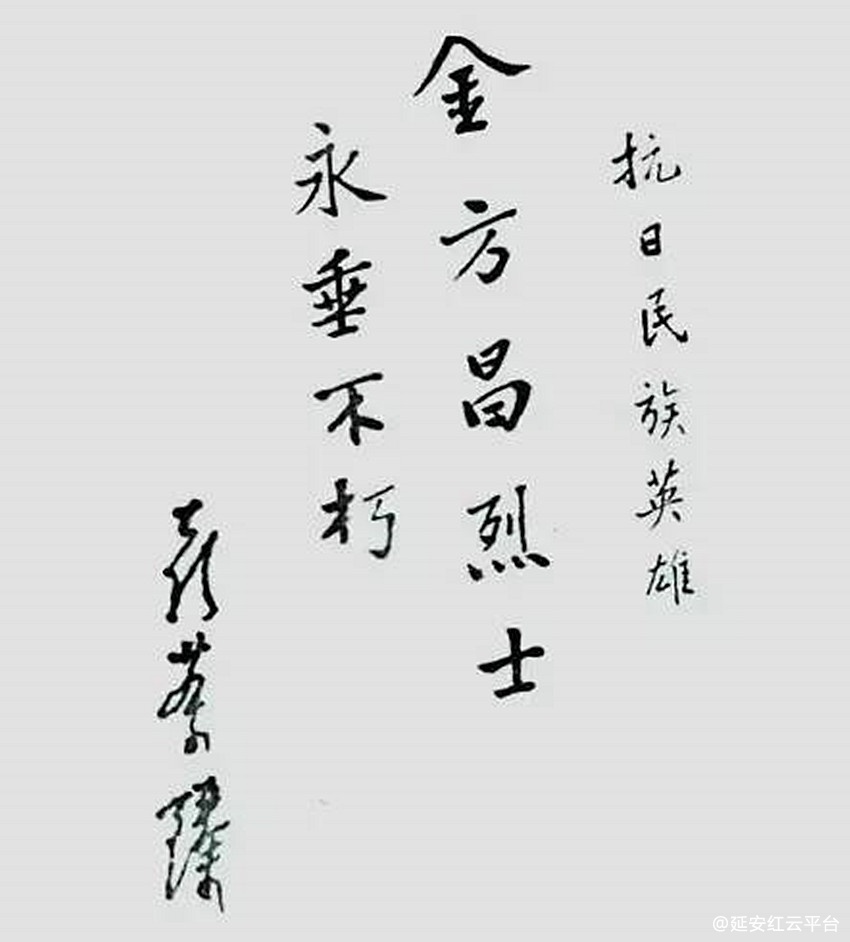 抗日民族英雄
金方昌烈士
永垂不朽
聂荣臻
@延安红云平台